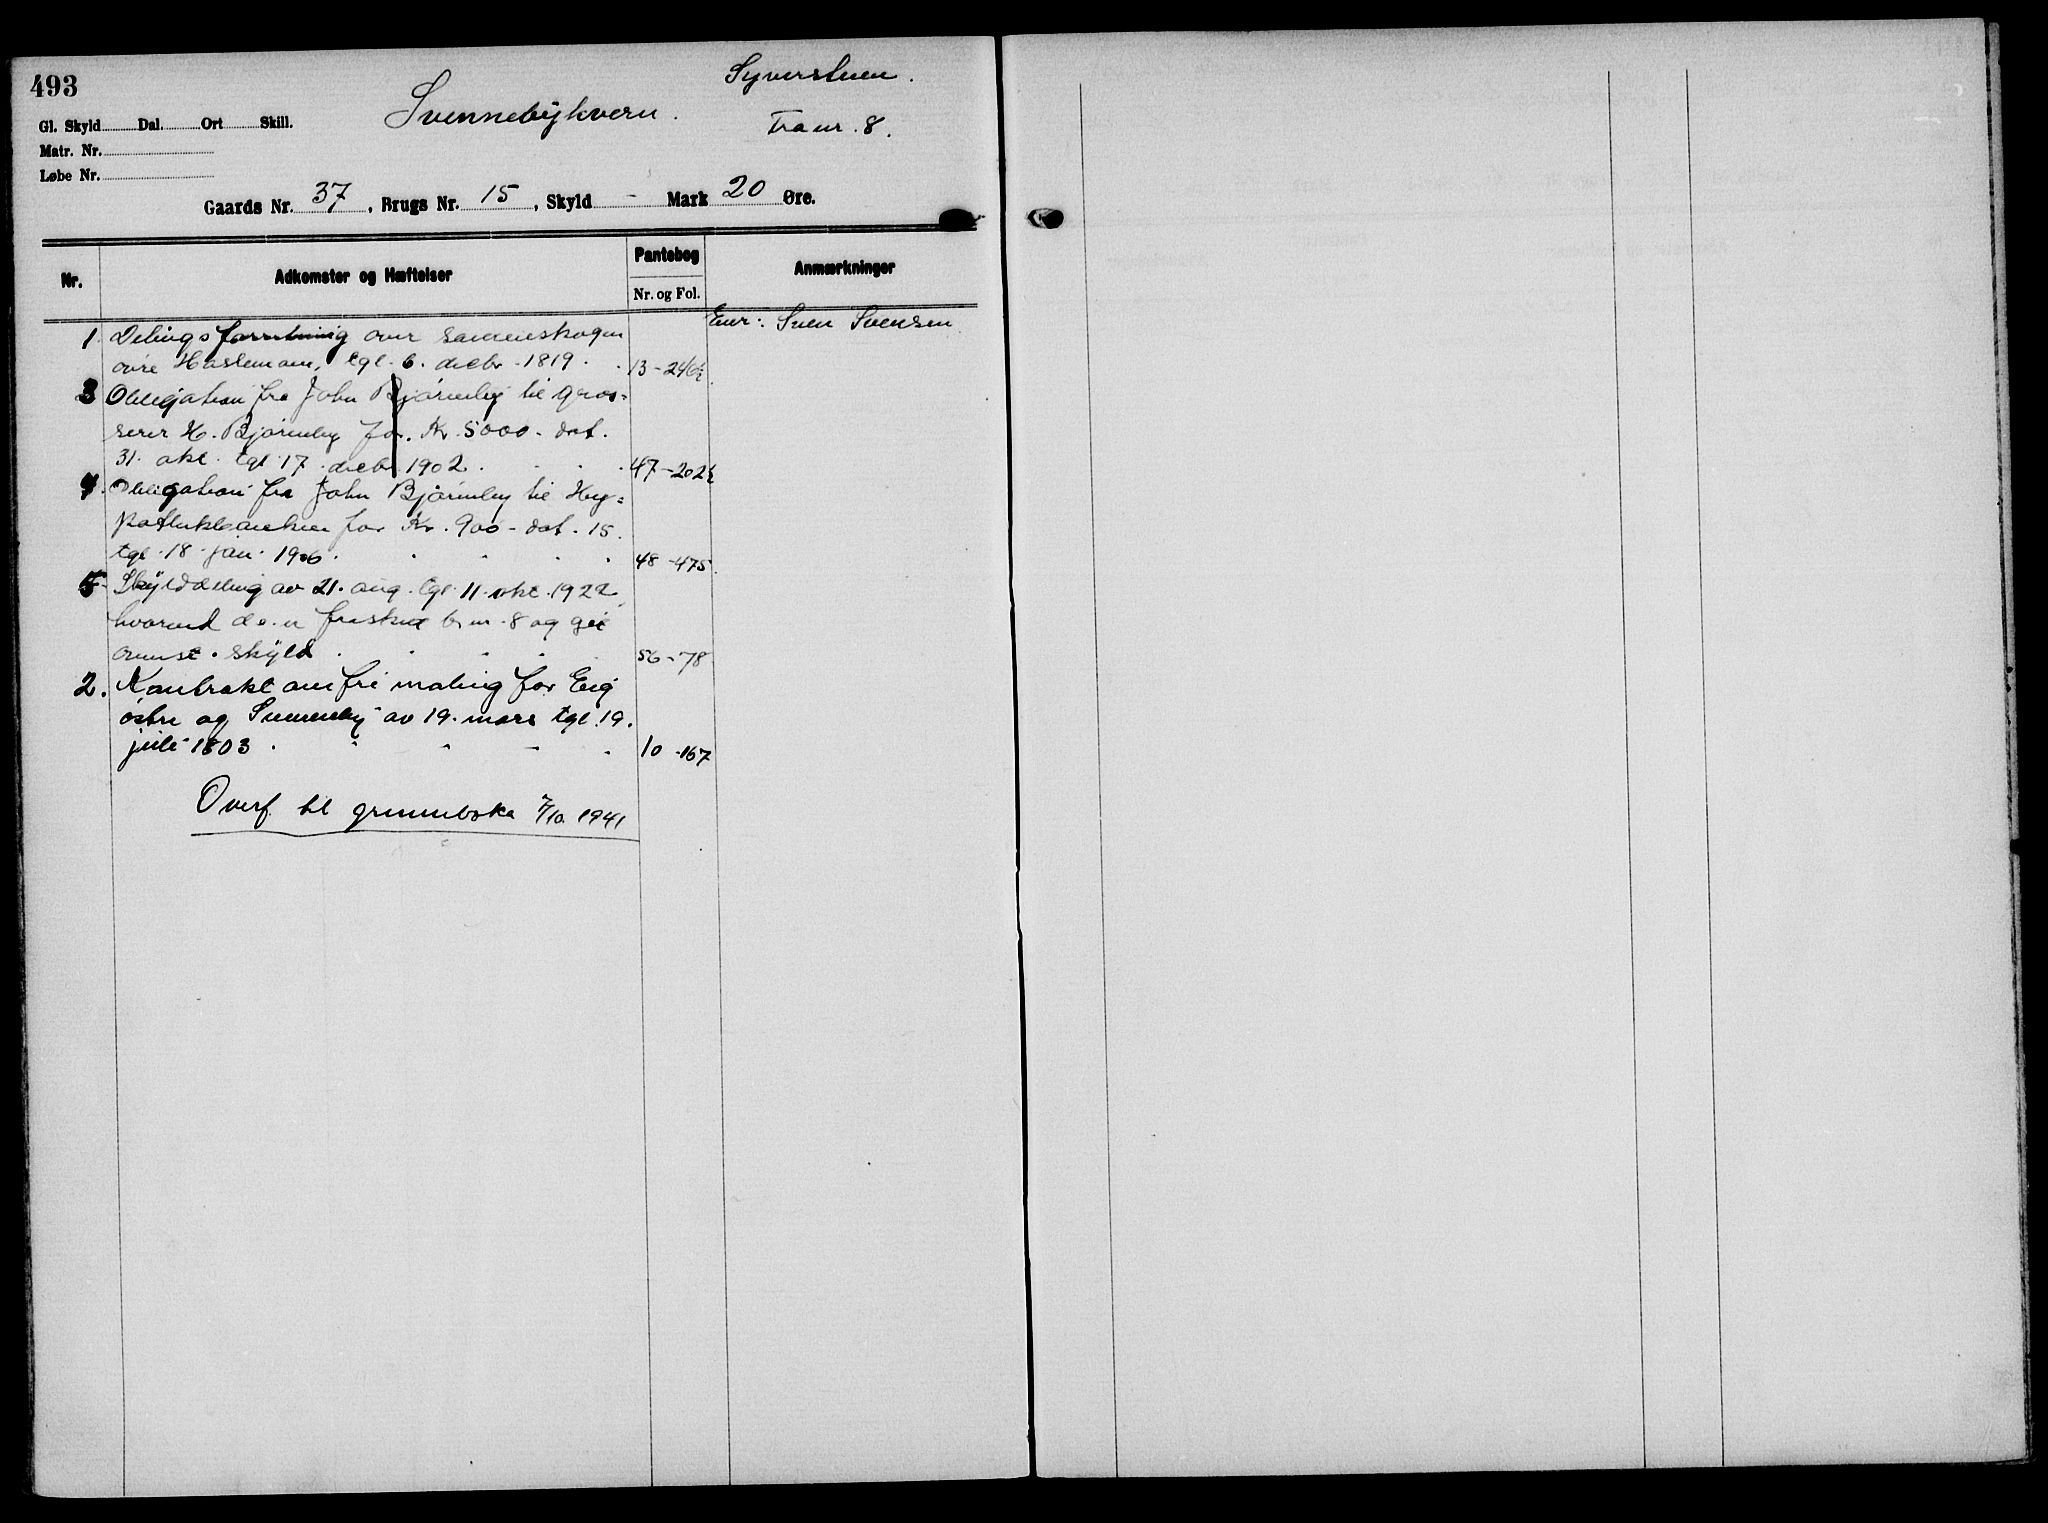 493
Svennebykvern.
Syverstuen.
Fra nr. 8.
Gl. Skyld Dal. Ort Skill.
Matr. Nr.
Løbe Nr.
Gaards Nr. 37, Brugs Nr. 15, Skyld - Mark 20 Øre.
Nr. Adkomster og Hæftelser Pantebog Anmærkninger
Nr. og Fol.
Eier: Sven Svensen.
1. Delingsforretning over sameskogen
øvre Haslemoen, tgl. 6. decbr. 1819. 13-246½
3 Obligation fra John Bjørneby til gros=
serer H. Bjørneby for Kr. 5000- dat.
31. okt. tgl. 17. decbr. 1902. 47-202½
4. Obligation fra John Bjørneby til Hy=
potekbanken for Kr. 900- dat. 15.
tgl. 18. jan. 1906. 48-475.
5- Skylddeling av 21. aug. tgl. 11. okt. 1922
hvorved d.e. er fraskilt br. nr. 8 og git
ovenst. skyld. 56-78
2. Kontrakt om fri maling for Eng
østre og Svenneby av 19. mars tgl. 19.
juli 1803. 10-167
Overf. til grunnboka 7/10. 1941